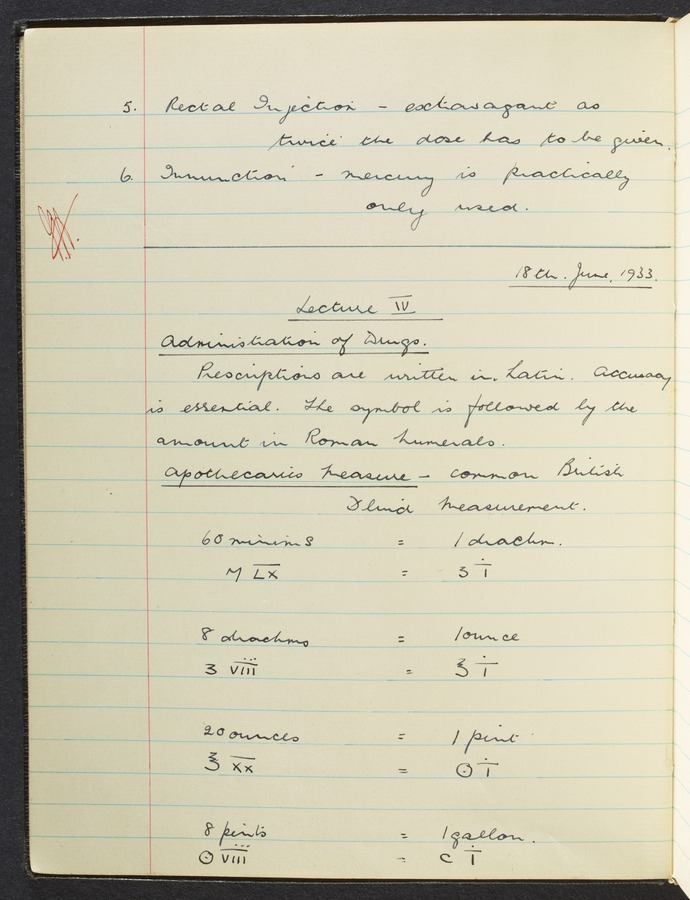 5. Rectal Injection - extravagant as
twice the dose has to be given.
6. Innunction - mercury is practically
only used.
18th. June, 1933.
Lecture IV
Administration of Drugs.
Prescriptions are written in Latin. Accuracy
is essential. The symbol is followed by the
amount in Roman numerals.
Apothecaries Measure - common British
Fluid Measurement.
60 minims = 1 drachm.
♏ LX = ʒ i
8 drachms = 1 ounce
ʒ viii = ℥ i
20 ounces = 1 pint
℥ xx = O i
8 pints = 1 gallon.
O viii = C i